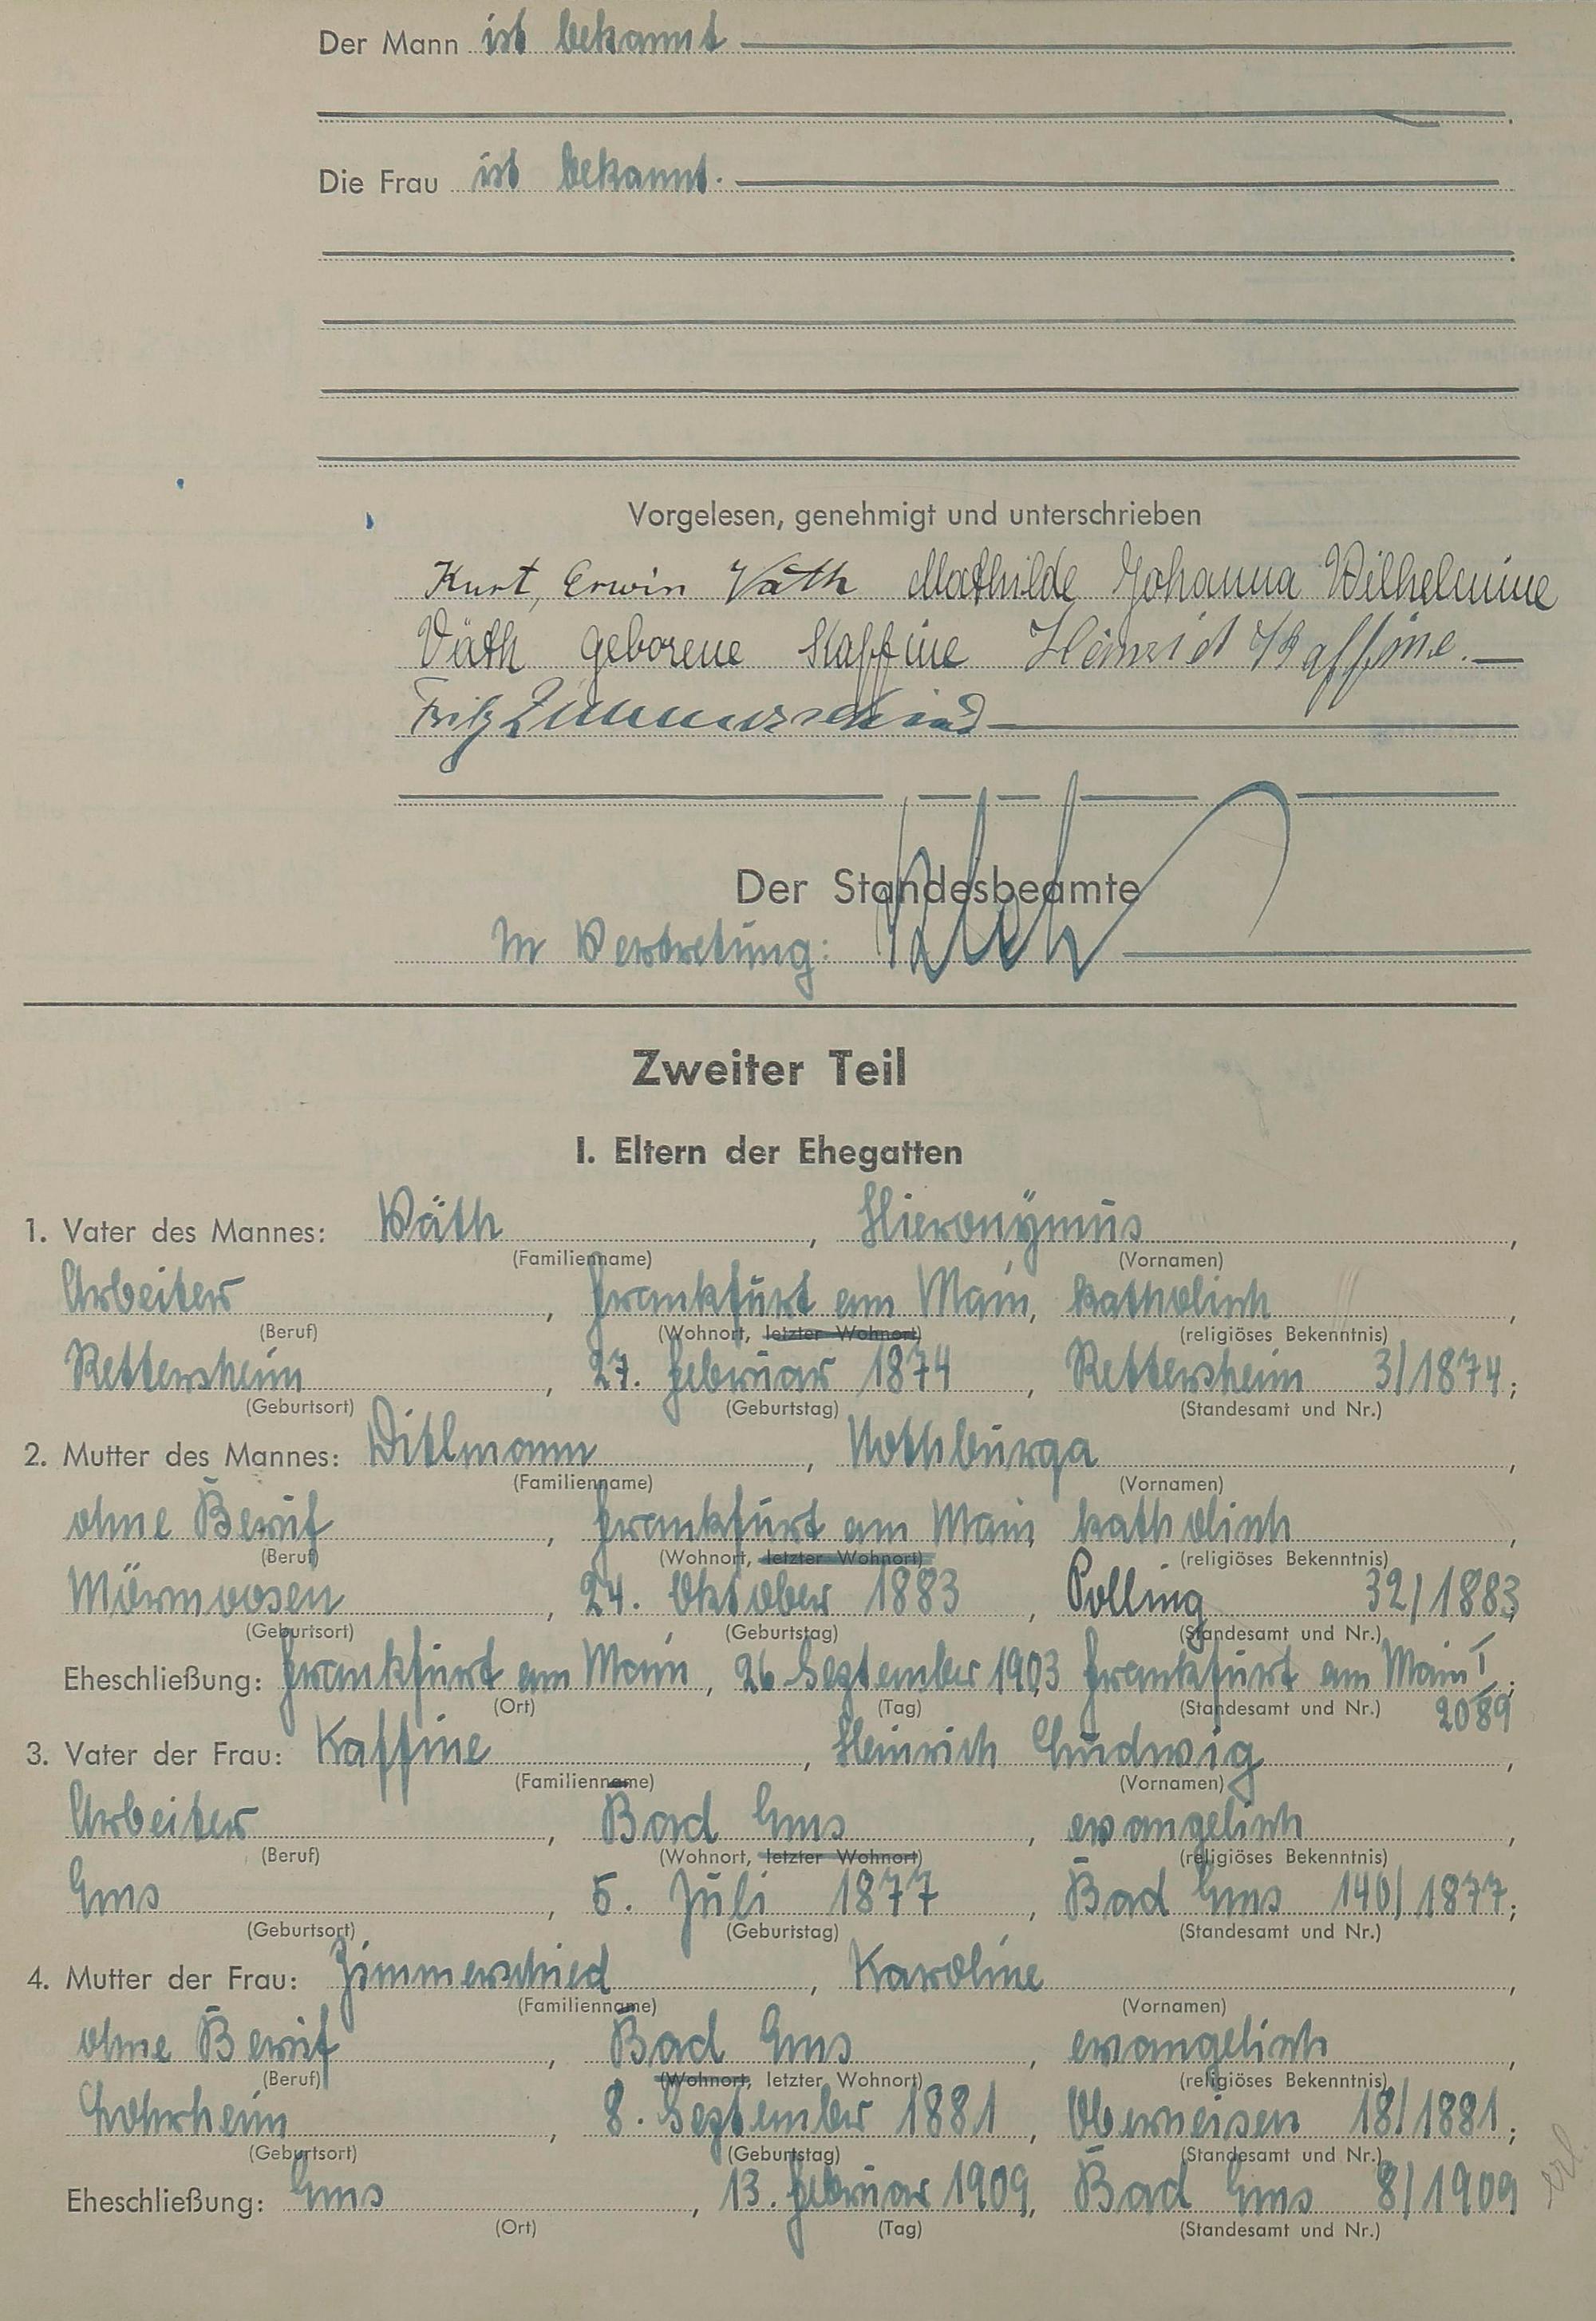 Der Mann ist bekannt
Die Frau ist bekannt.
Vorgelesen, genehmigt und unterschrieben
Kurt, Erwin Väth Mathilde Johanna Wilhelmine
Väth geborene Kaffine Heinrich Kaffine.
Fritz Zimmerschied
Der Standesbeamte
In Vertretung:
Zweiter Teil
I. Eltern der Ehegatten
1. Vater des Mannes: Väth, Hieronymus,
(Familienname) (Vornamen)
Arbeiter, Frankfurt am Main, katholisch,
(Beruf) (Wohnort, letzter Wohnort) (religiöses Bekenntnis)
Rettersheim, 27. Februar 1874, Rettersheim 3/1874;
(Geburtsort) (Geburtstag) (Standesamt und Nr.)
2. Mutter des Mannes: Ditlmann, Nothburga,
(Familienname) (Vornamen)
ohne Beruf, Frankfurt am Main, katholisch,
(Beruf) (Wohnort, letzter Wohnort) (religiöses Bekenntnis)
Mörmoosen, 24. Oktober 1883, Polling 32/1883;
(Geburtsort) (Geburtstag) (Standesamt und Nr.)
Eheschließung: Frankfurt am Main, 26. September 1903, Frankfurt am Main I;
(Ort) (Tag) (Standesamt und Nr.) 2089
3. Vater der Frau: Kaffine, Heinrich Ludwig,
(Familienname) (Vornamen)
Arbeiter, Bad Ems, evangelisch,
(Beruf) (Wohnort, letzter Wohnort) (religiöses Bekenntnis)
Ems, 5. Juli 1877, Bad Ems 140/1877;
(Geburtsort) (Geburtstag) (Standesamt und Nr.)
4. Mutter der Frau: Zimmerschied, Karoline,
(Familienname) (Vornamen)
ohne Beruf, Bad Ems, evangelisch,
(Beruf) (Wohnort, letzter Wohnort) (religiöses Bekenntnis)
Lohrheim, 8. September 1881, Oberneisen 18/1881;
(Geburtsort) (Geburtstag) (Standesamt und Nr.)
Eheschließung: Ems, 13. Februar 1909, Bad Ems 8/1909
(Ort) (Tag) (Standesamt und Nr.)